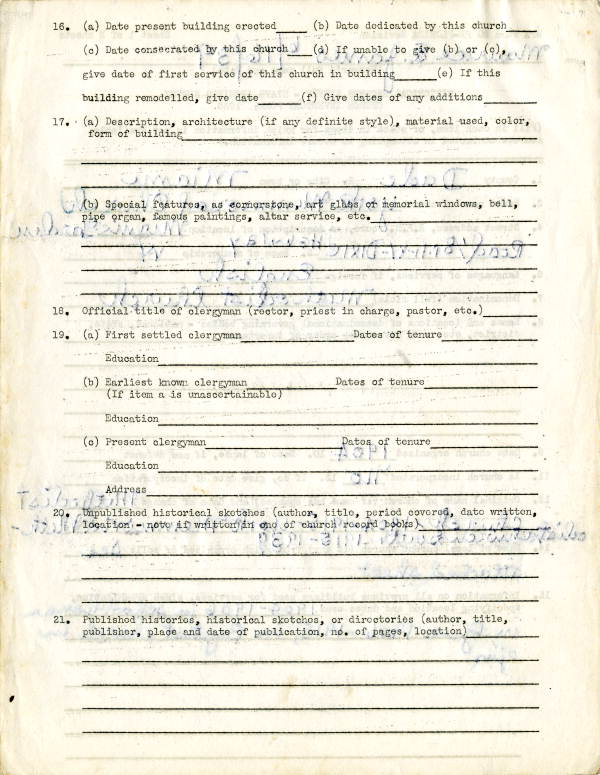 16. (a) Date present building erected____ (b) Date dedicated by this church____
(c) Date consecrated by this church____ (d) If unable to give (b) or (c),
give date of first service of this church in building______ (e) If this
building remodelled, give date______ (f) Give dates of any additions________
17. (a) Description, architecture (if any definite style), material used, color,
form of building________
(b) Special features, as cornerstone, art glass or memorial windows, bell,
pipe organ, famous paintings, altar service, etc.________
18. Official title of clergyman (rector, priest in charge, pastor, etc.)________
19. (a) First settled clergyman________ Dates of tenure________
Education________
(b) Earliest known clergyman________ Dates of tenure________
(If item a is unascertainable)
Education________
(c) Present clergyman________ Dates of tenure________
Education________
Address________
20. Unpublished historical sketches (author, title, period covered, date written,
location - note if written in one of church record books)________
21. Published histories, historical sketches, or directories (author, title,
publisher, place and date of publication, no. of pages, location)________